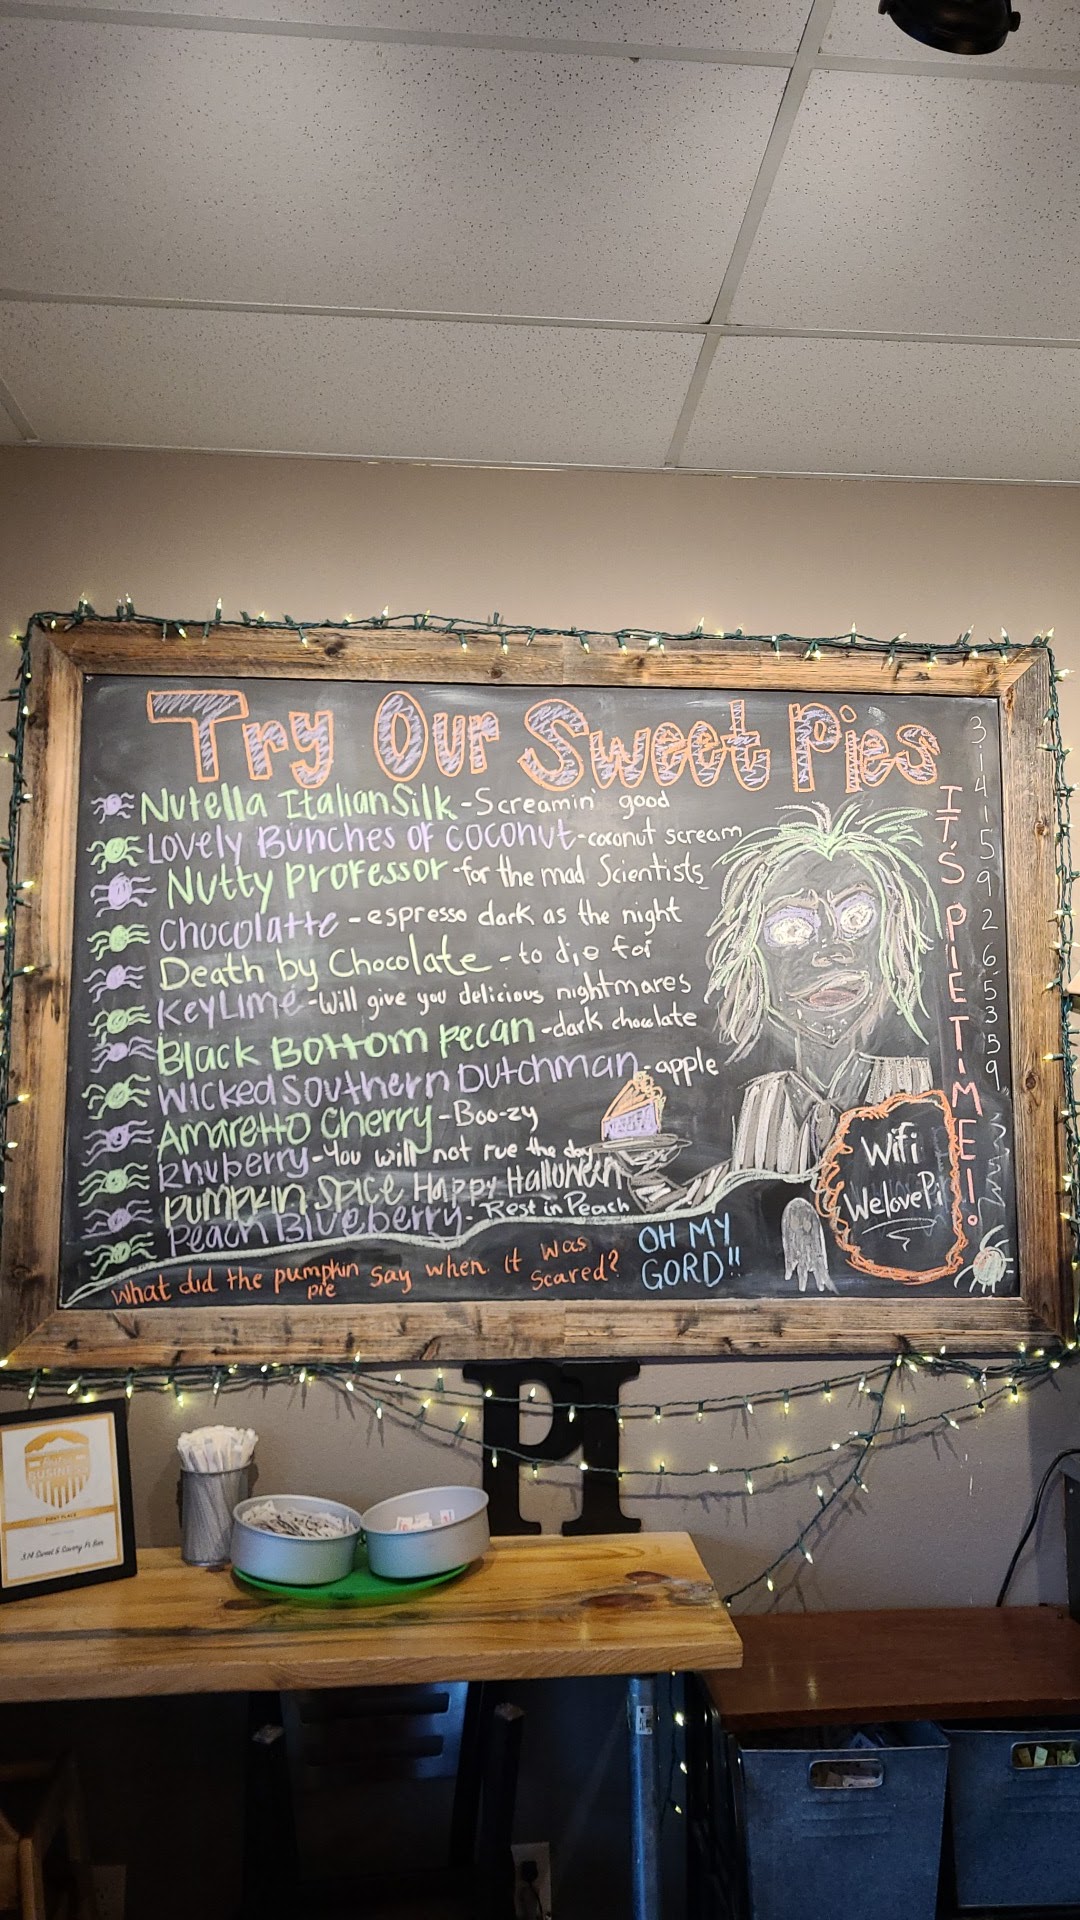 Try Our Sweet Pies
Nutella Italian Silk - Screamin' good
Lovely Bunches of coconut - coconut scream
Nutty Professor - for the mad Scientists
Chocolatte - espresso dark as the night
Death by Chocolate - to die for
Key Lime - Will give you delicious nightmares
Black Bottom pecan - dark chocolate
Wicked Southern Dutchman - apple
Amaretto Cherry - Boo-zy
Rhuberry - You will not rue the day
Pumpkin Spice Happy Halloween
Peach Blueberry - Rest in Peach
What did the pumpkin pie say when it was scared?
OH MY
GORD!!
Wifi
WelovePi
IT'S PIE TIME!
3.14159265359
PI
BUSINESS
FIRST PLACE
3.14 Sweet & Savory Pi Bar